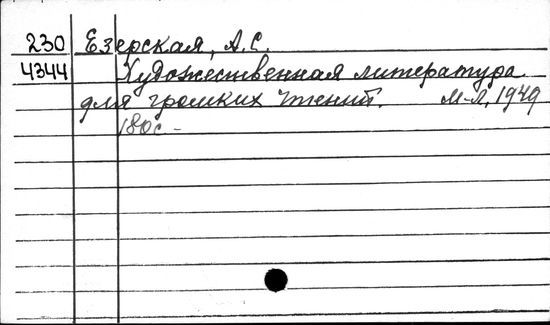 230 Езерская, А.С.
4344 Художественная литература
для громких чтений. М-Л, 1949
180с-